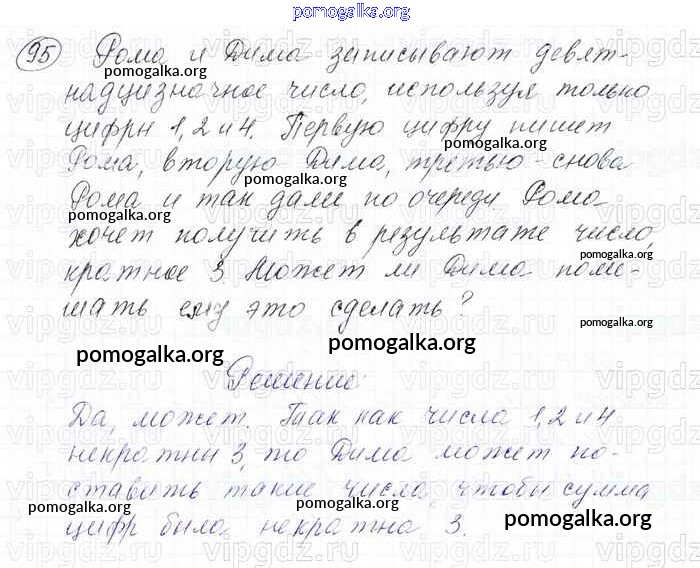 pomogalka.org
95 Рома и Дима записывают девят-
pomogalka.org
надцизначное число, используя только
цифры 1, 2 и 4. Первую цифру пишет
pomogalka.org
Рома, вторую Дима, третью - снова
pomogalka.org
Рома и так далее по очереди Рома
pomogalka.org
хочет получить в результате число,
кратное 3. Может ли Дима поме-
pomogalka.org
шать ему это сделать?
pomogalka.org
pomogalka.org
pomogalka.org
Решение:
Да, может. Так как числа 1, 2 и 4
некратны 3, то Дима может по-
ставить такие числа, чтобы сумма
pomogalka.org pomogalka.org
цифр была некратна 3.
pomogalka.org